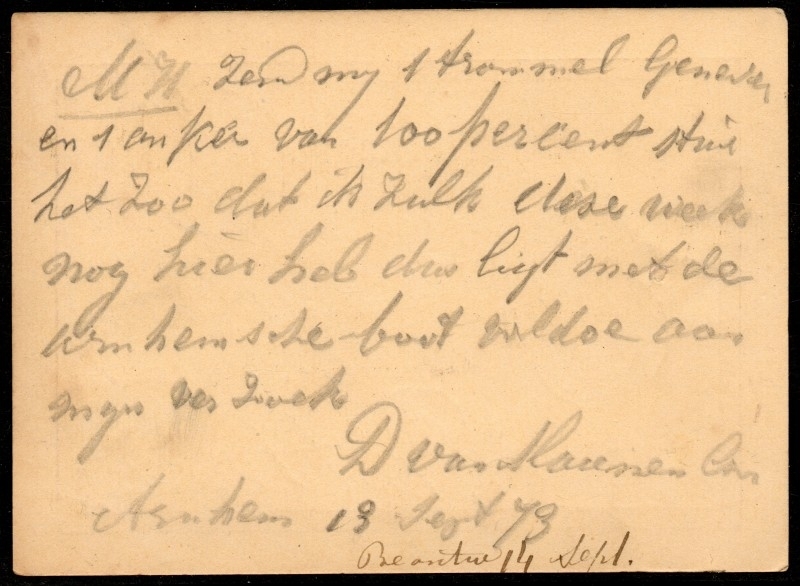 M H Zend my 1 trommel Genever
en 1 anker van 100 percent stuur
het zoo dat ik zulk dese week
nog hier heb dus met de
arnhemsche boot voldoe aan
myn verzoek
D van
Arnhem 13 Sept 73
Beantw 14 Sept.